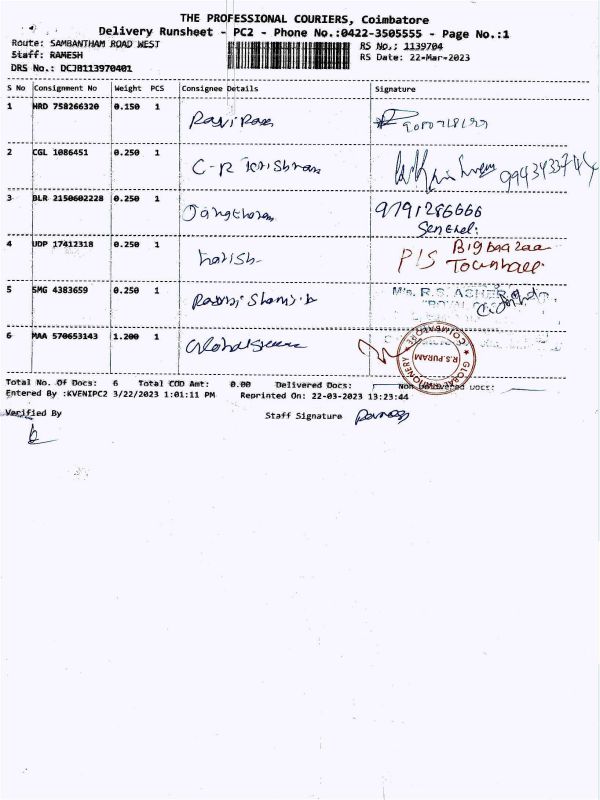 THE PROFESSIONAL COURIERS, Coimbatore
Delivery Runsheet - PC2 - Phone No.:0422-3505555 - Page No.:1
Route: SAMBANTHAM ROAD WEST
Staff: RAMESH
DRS No.: DCJB113970401
RS No.; 1139704
RS Date: 22-Mar-2023
S No Consignment No Weight PCS Consignee Details Signature
1 HRD 758266320 0.150 1
2 CGL 1086451 0.250 1 C-R 9943433744
3 BLR 2150602228 0.250 1 9791286666
4 UDP 17412318 0.250 1 harish P/S Townhall
5 SMG 4383659 0.250 1 M/s. R.S. ASHER
6 MAA 570653143 1.200 1 GLOBAL STATIONERY COIMBATORE R.S.PURAM
Total No. Of Docs: 6 Total COD Amt: 0.00 Delivered Docs: Non Delivered Docs:
Entered By :KVENIPC2 3/22/2023 1:01:11 PM Reprinted On: 22-03-2023 13:23:44
Verified By Staff Signature